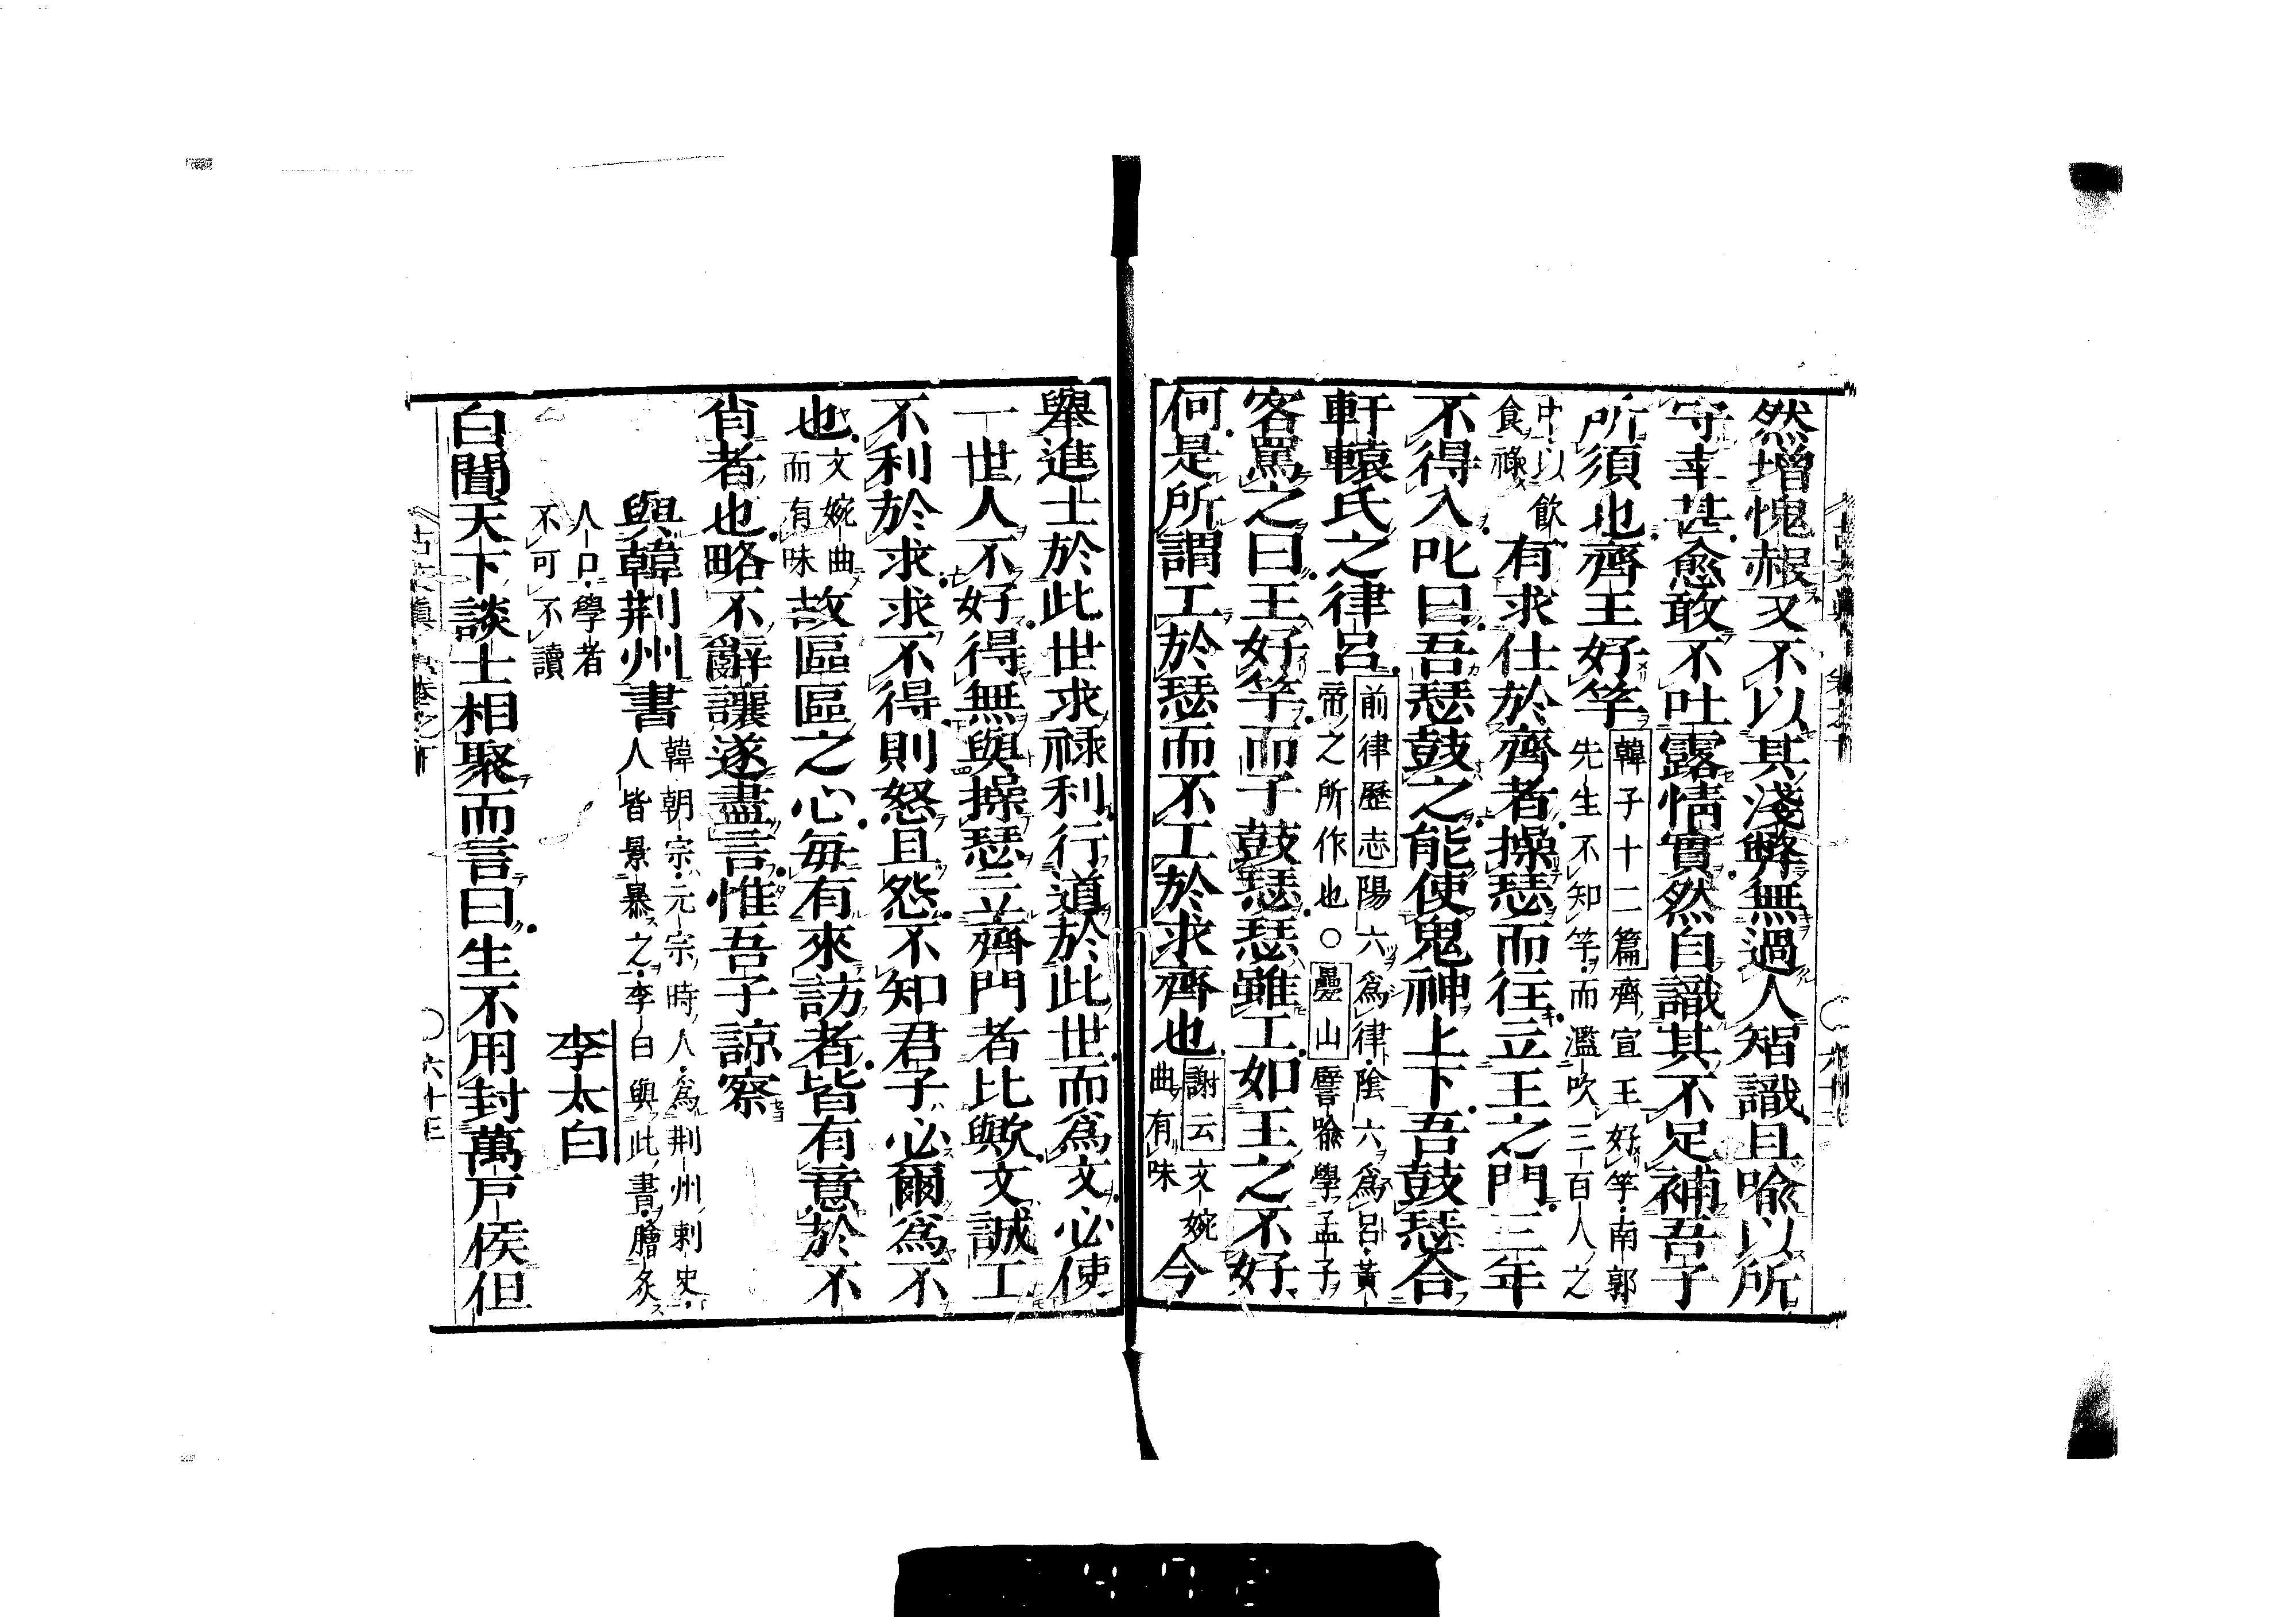 然增愧赧又不以其淺弊無過人智識且喩以所
守幸甚愈敢不吐露情實然自識其不足補吾子
所須也齊王好竽韓子十二篇齊宣王好竽南郭
先生不知竽而濫吹三百人之
中以飮
食祿有求仕於齊者操瑟而往立王之門三年
不得入叱曰吾瑟鼓之能使鬼神上下吾鼓瑟合
軒轅氏之律呂前律歷志陽六爲律陰六爲呂黃
帝之所作也○疊山譬喩學孟子
客罵之曰王好竽而子鼓瑟瑟雖工如王之不好
何是所謂工於瑟而不工於求齊也謝云文婉
曲有味今
舉進士於此世求祿利行道於此世而爲文必使
一世人不好得無與操瑟立齊門者比歟文誠工
不利於求求不得則怒且怨不知君子必爾爲不
也文婉曲
而有味故區區之心每有來訪者皆有意於不
肖者也略不辭讓遂盡言惟吾子諒察
與韓荆州書韓朝宗元宗時人爲荆州刺史
人皆景慕之李白與此書膾炙
人口學者
不可不讀
李太白
白聞天下談士相聚而言曰生不用封萬戸侯但